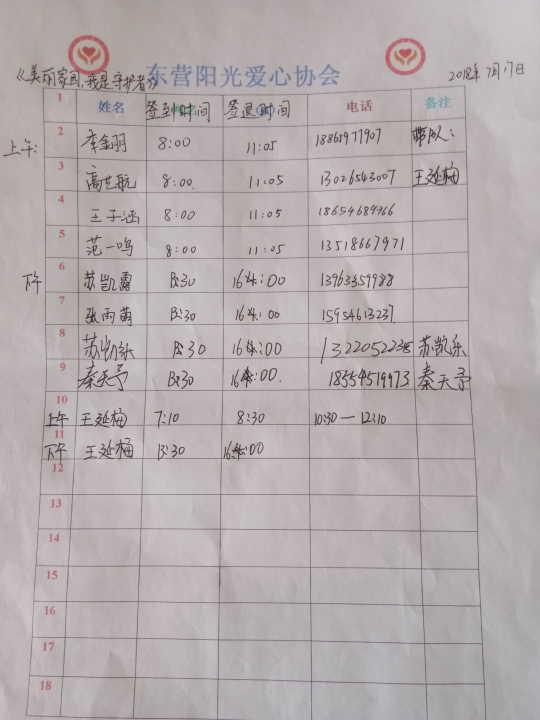 东营阳光爱心协会
《美丽家园,我是守护者》 2018年7月17日
1 姓名 签到时间 签退时间 电话 备注
上午: 2 李金羽 8:00 11:05 18861977907 带队:
3 高世航 8:00 11:05 13026543007 王延梅
4 王子涵 8:00 11:05 18654689966
5 范一鸣 8:00 11:05 13518667971
下午 6 苏凯露 13:30 16:00 13963359988
7 张雨萌 13:30 16:00 15954613237
8 苏凯乐 13:30 16:00 苏凯乐
9 秦天予 13:30 16:00. 18554519973 秦天予
10
上午 王延梅 7:10 8:30 10:30—12:10
11
下午 王延梅 13:30 16:00
12
13
14
15
16
17
18